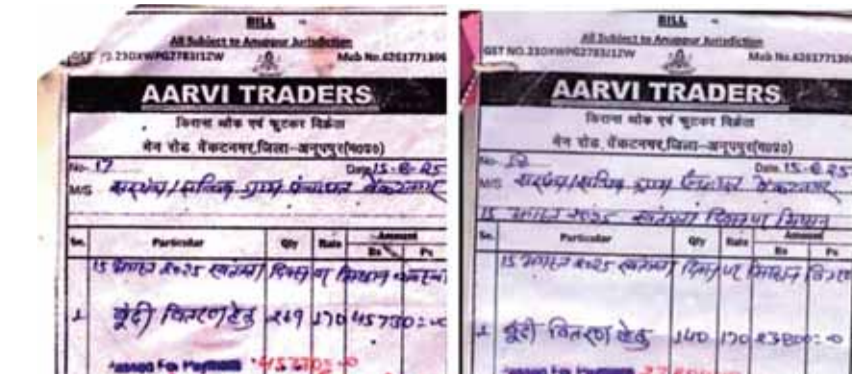 BILL
All Subject to Anuppur Jurisdiction
GST NO.23OXWPG2783J1ZW Mob No.626177130
AARVI TRADERS
किराना थोक एवं फुटकर विक्रेता
मेन रोड वेंकटनगर,जिला–अनूपपुर(म०प्र०)
No- 17 Date 15-8-25
M/S सरपंच/सचिव ग्राम पंचायत वेंकटनगर
Sn. Particular Qty Rate Amount
Rs Ps
15 अगस्त 2025 स्वतंत्रता दिवस पर मिष्ठान
1 बूंदी वितरण हेतु 269 170 45730=00
Passed For Payment 45730=00
BILL
All Subject to Anuppur Jurisdiction
GST NO.23OXWPG2783J1ZW Mob No.626177130
AARVI TRADERS
किराना थोक एवं फुटकर विक्रेता
मेन रोड वेंकटनगर,जिला–अनूपपुर(म०प्र०)
No- Date 15-8-25
M/S सरपंच/सचिव ग्राम पंचायत वेंकटनगर
15 अगस्त 2025 स्वतंत्रता दिवस पर मिष्ठान
Sn. Particular Qty Rate Amount
Rs Ps
15 अगस्त 2025 स्वतंत्रता दिवस पर मिष्ठान वितरण
1 बूंदी वितरण हेतु 140 170 23800=00
Passed For Payment